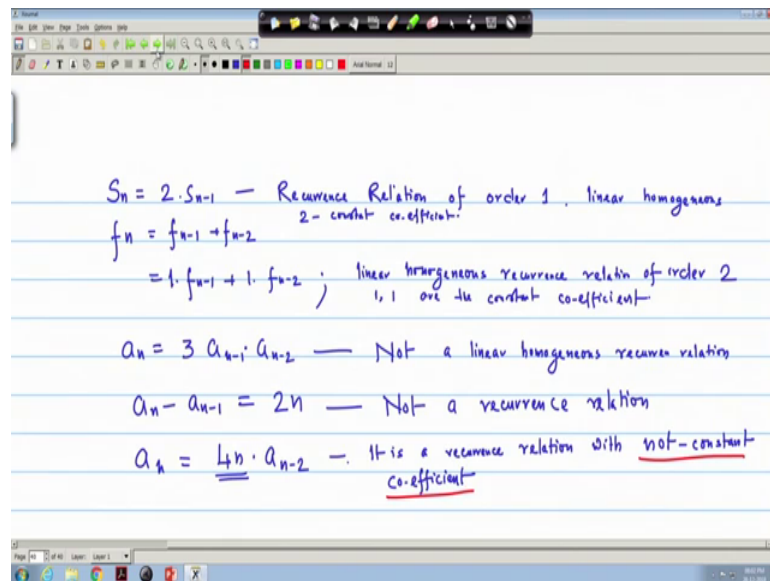 Journal
File Edit View Page Tools Options Help
Arial Normal 12
Sn = 2·Sn-1 — Recurrence Relation of order 1, linear homogeneous
2 - constat co-efficient.
fn = fn-1 + fn-2
= 1·fn-1 + 1·fn-2 ; linear homogeneous recurrence relatin of order 2
1, 1 are the constant co-efficient.
an = 3 an-1·an-2 — Not a linear homogeneous recurren relation
an - an-1 = 2n — Not a recurrence relation
an = 4n·an-2 —. It is a recurrence relation with not-constant
co-efficient
Page 40 of 40 Layer: Layer 1